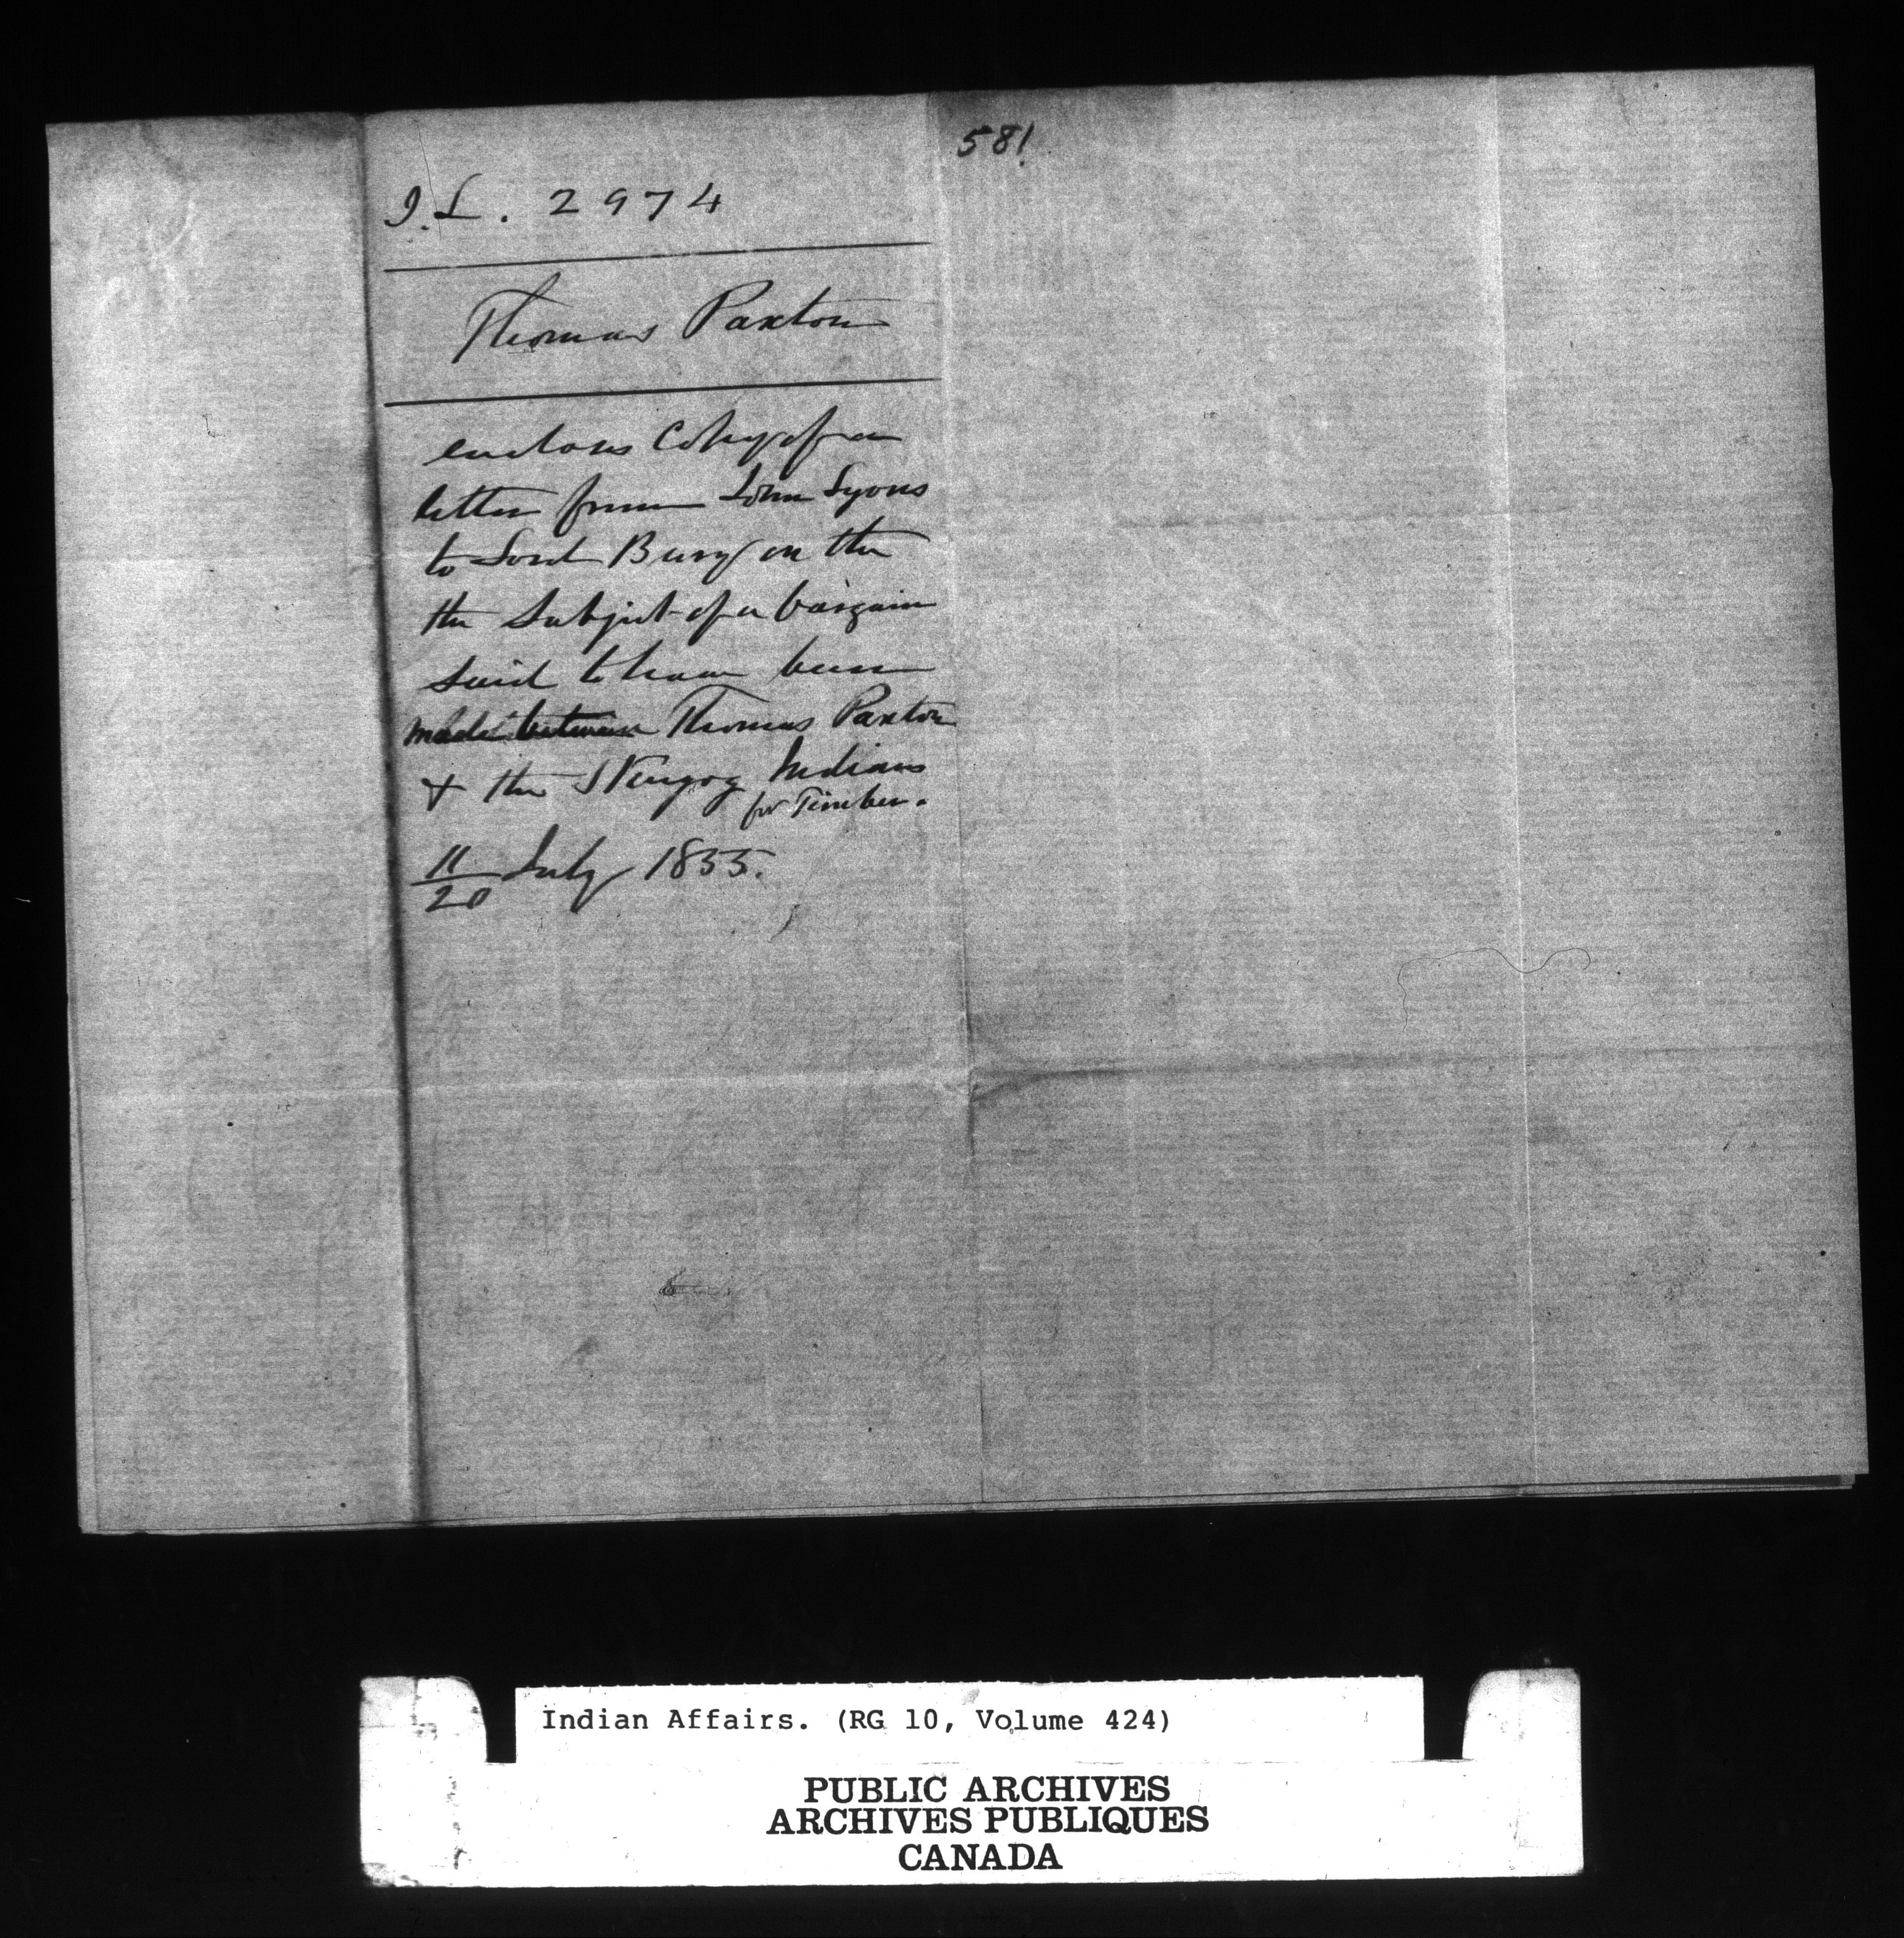 581
I.L. 2974
Thomas Paxton
encloses Copy of a
letter from John Lyons
to Lord Bury on the
the Subject of a bargain
said to have been
made between Thomas Paxton
& the Skugog Indians
for Timber.
11/20 July 1855.
Indian Affairs. (RG 10, Volume 424)
PUBLIC ARCHIVES
ARCHIVES PUBLIQUES
CANADA